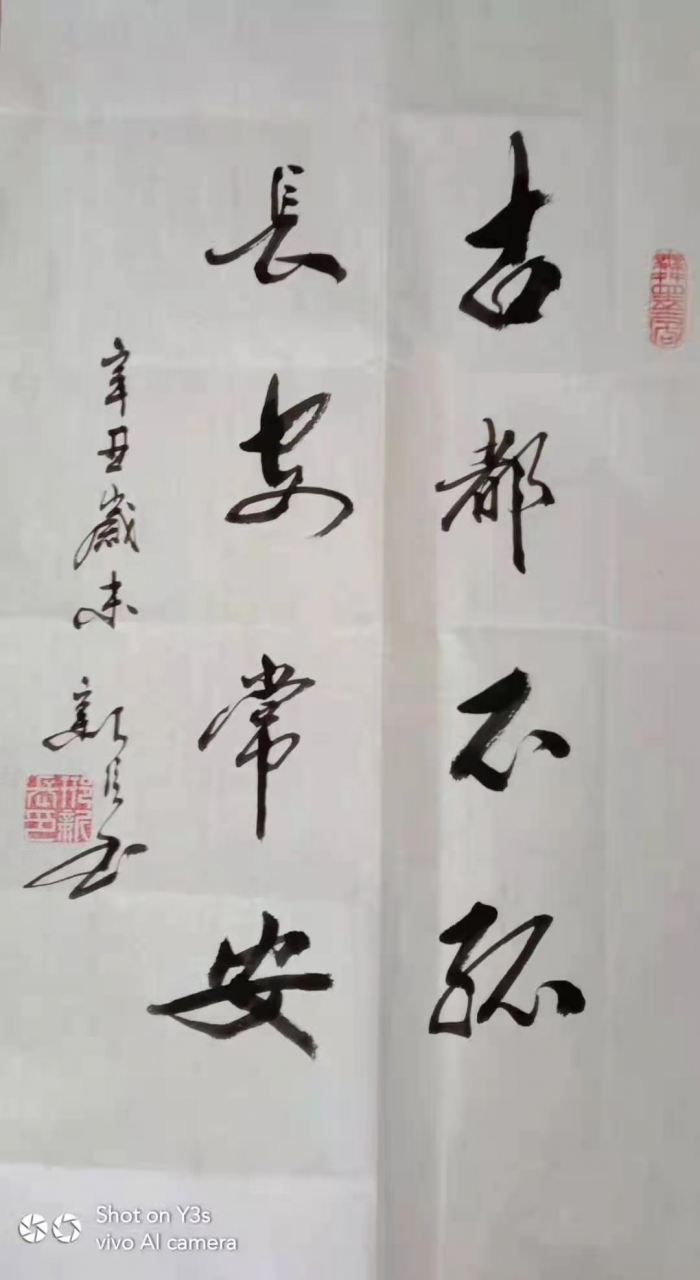 古都不孤
長安常安
辛丑歲末
新民书
Shot on Y3s
vivo AI camera